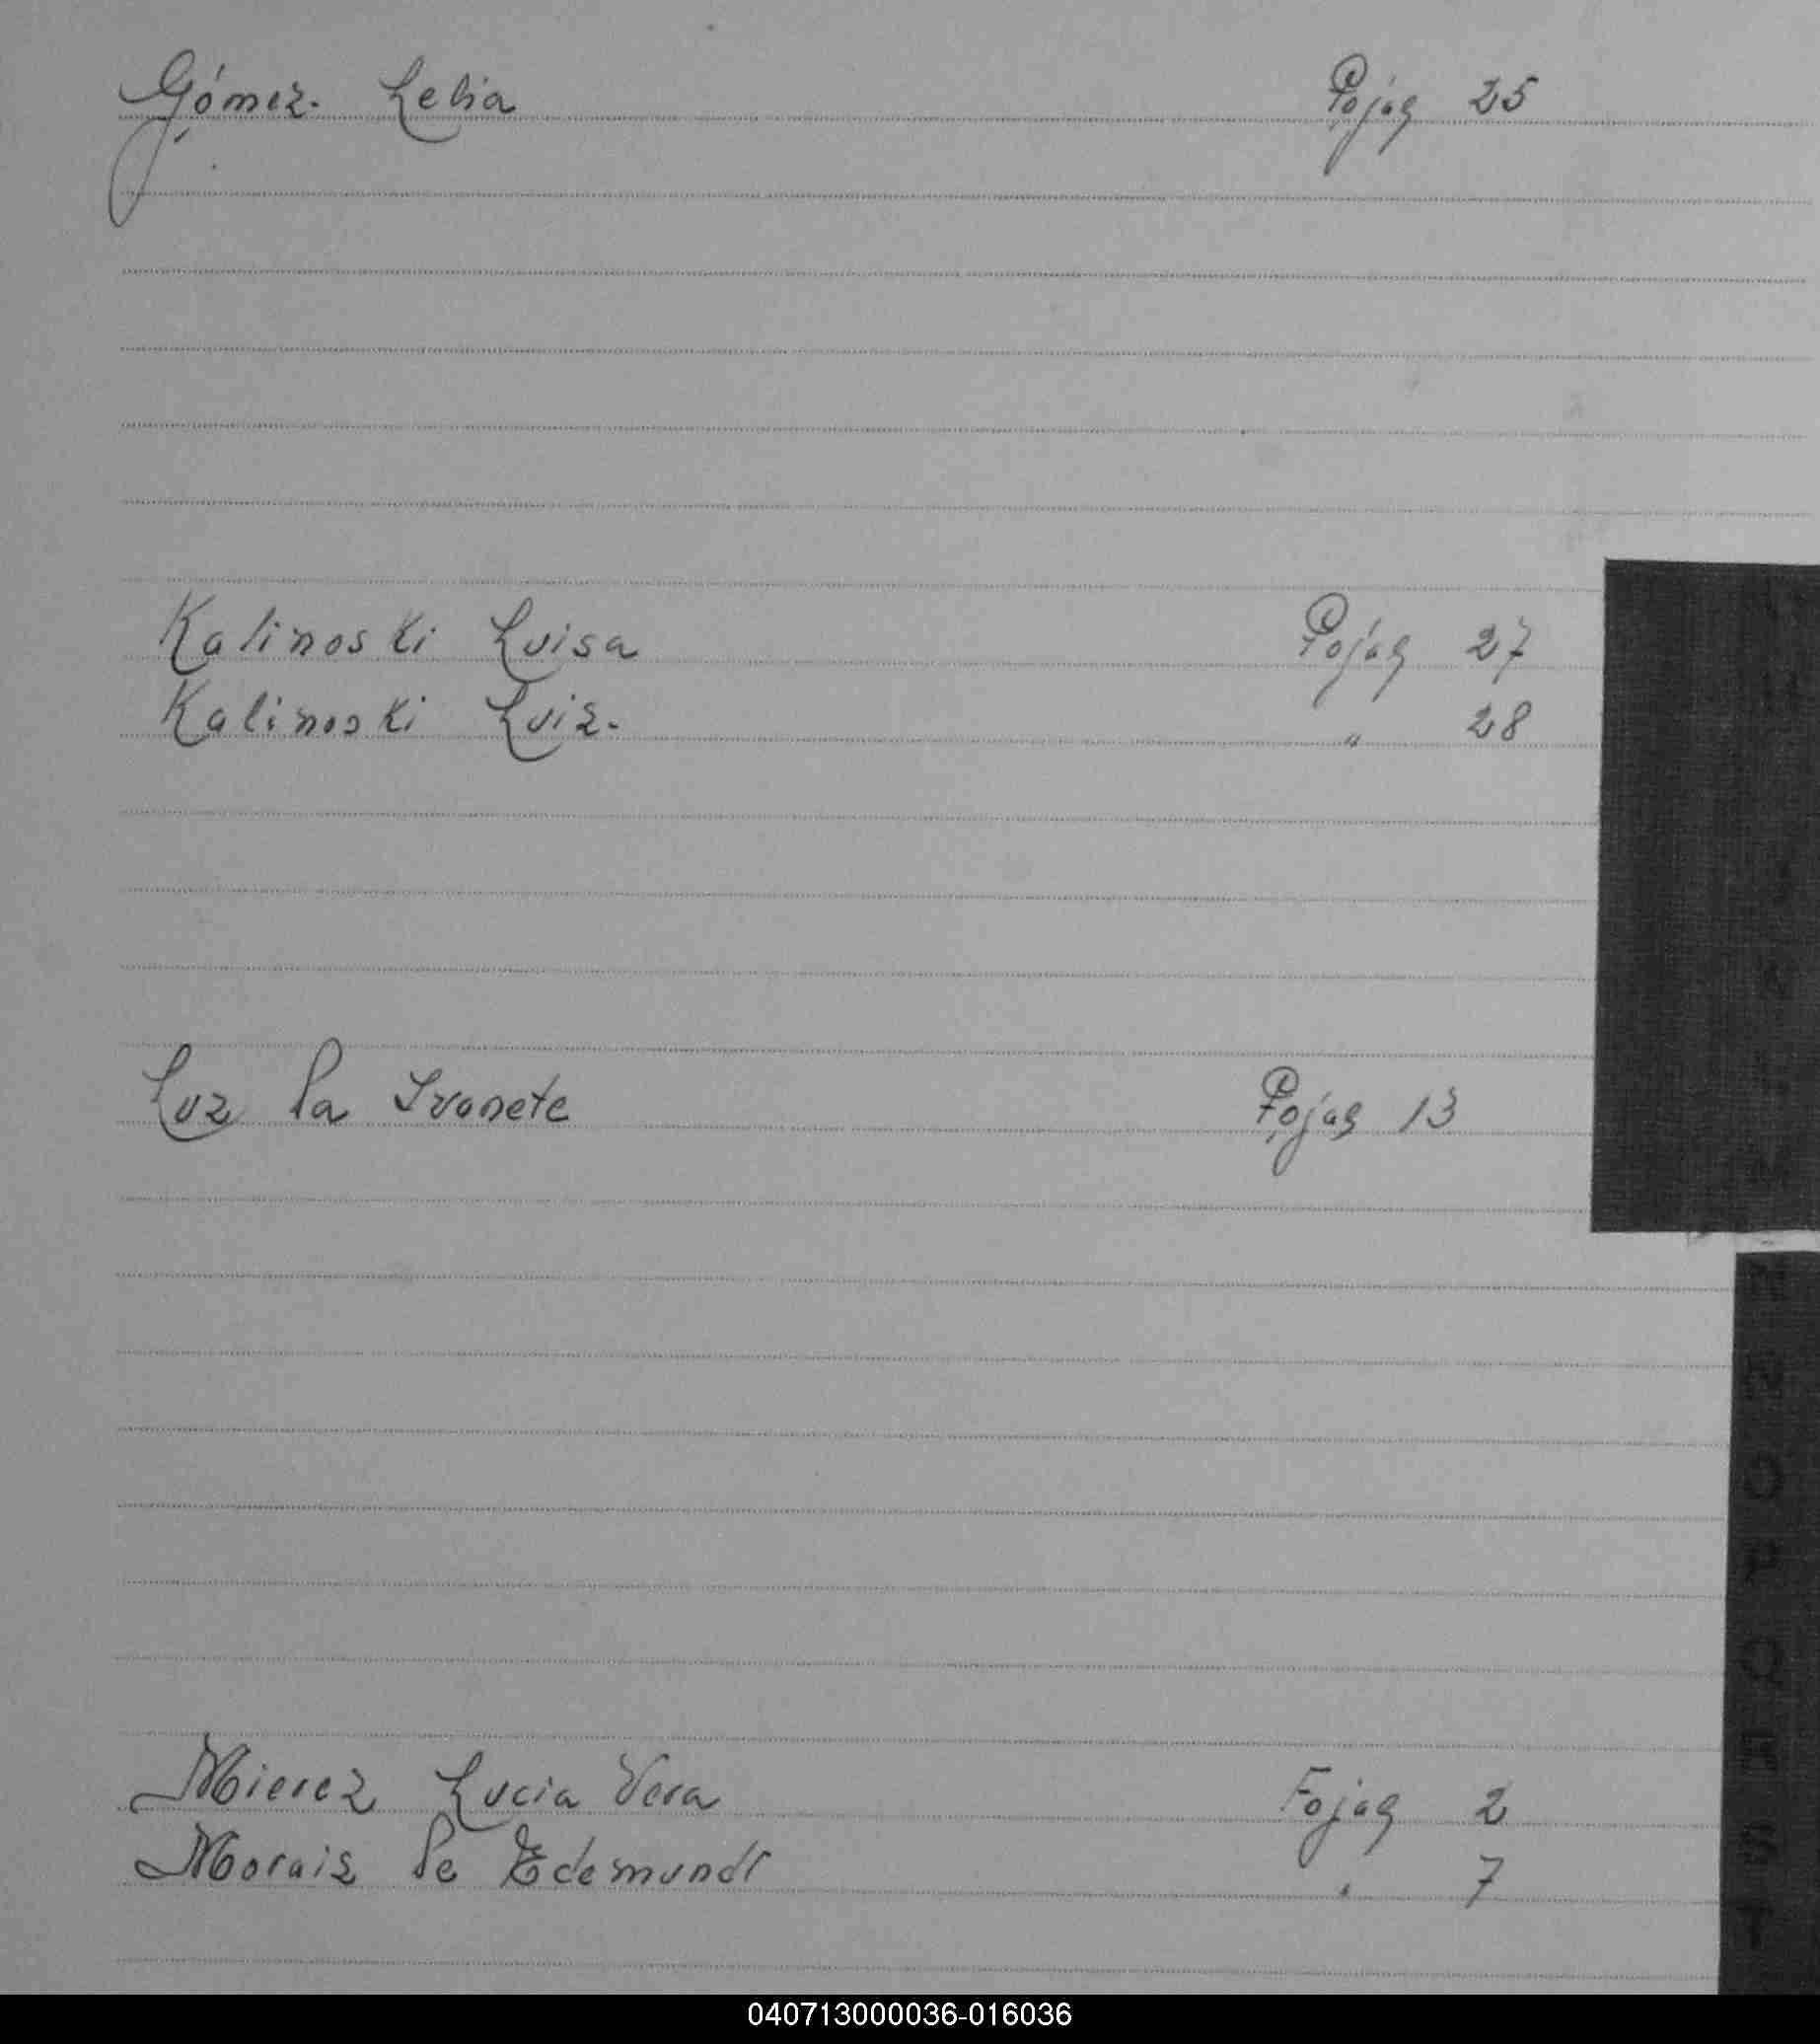 Gómez. Lelia Fojas 25
Kalinoski Luisa Fojas 27
Kalinoski Luiz. " 28
Luz Da Ivonete Fojas 13
Mierez Lucia Vera Fojas 2
Morais De Edemundo " 7
040713000036-016036